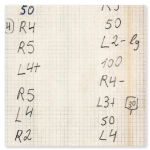 50
4 R4
R5
L4+
R5
L4
R2
R3
50
L2-lg
100
R4-
L3+ 30
50
L4